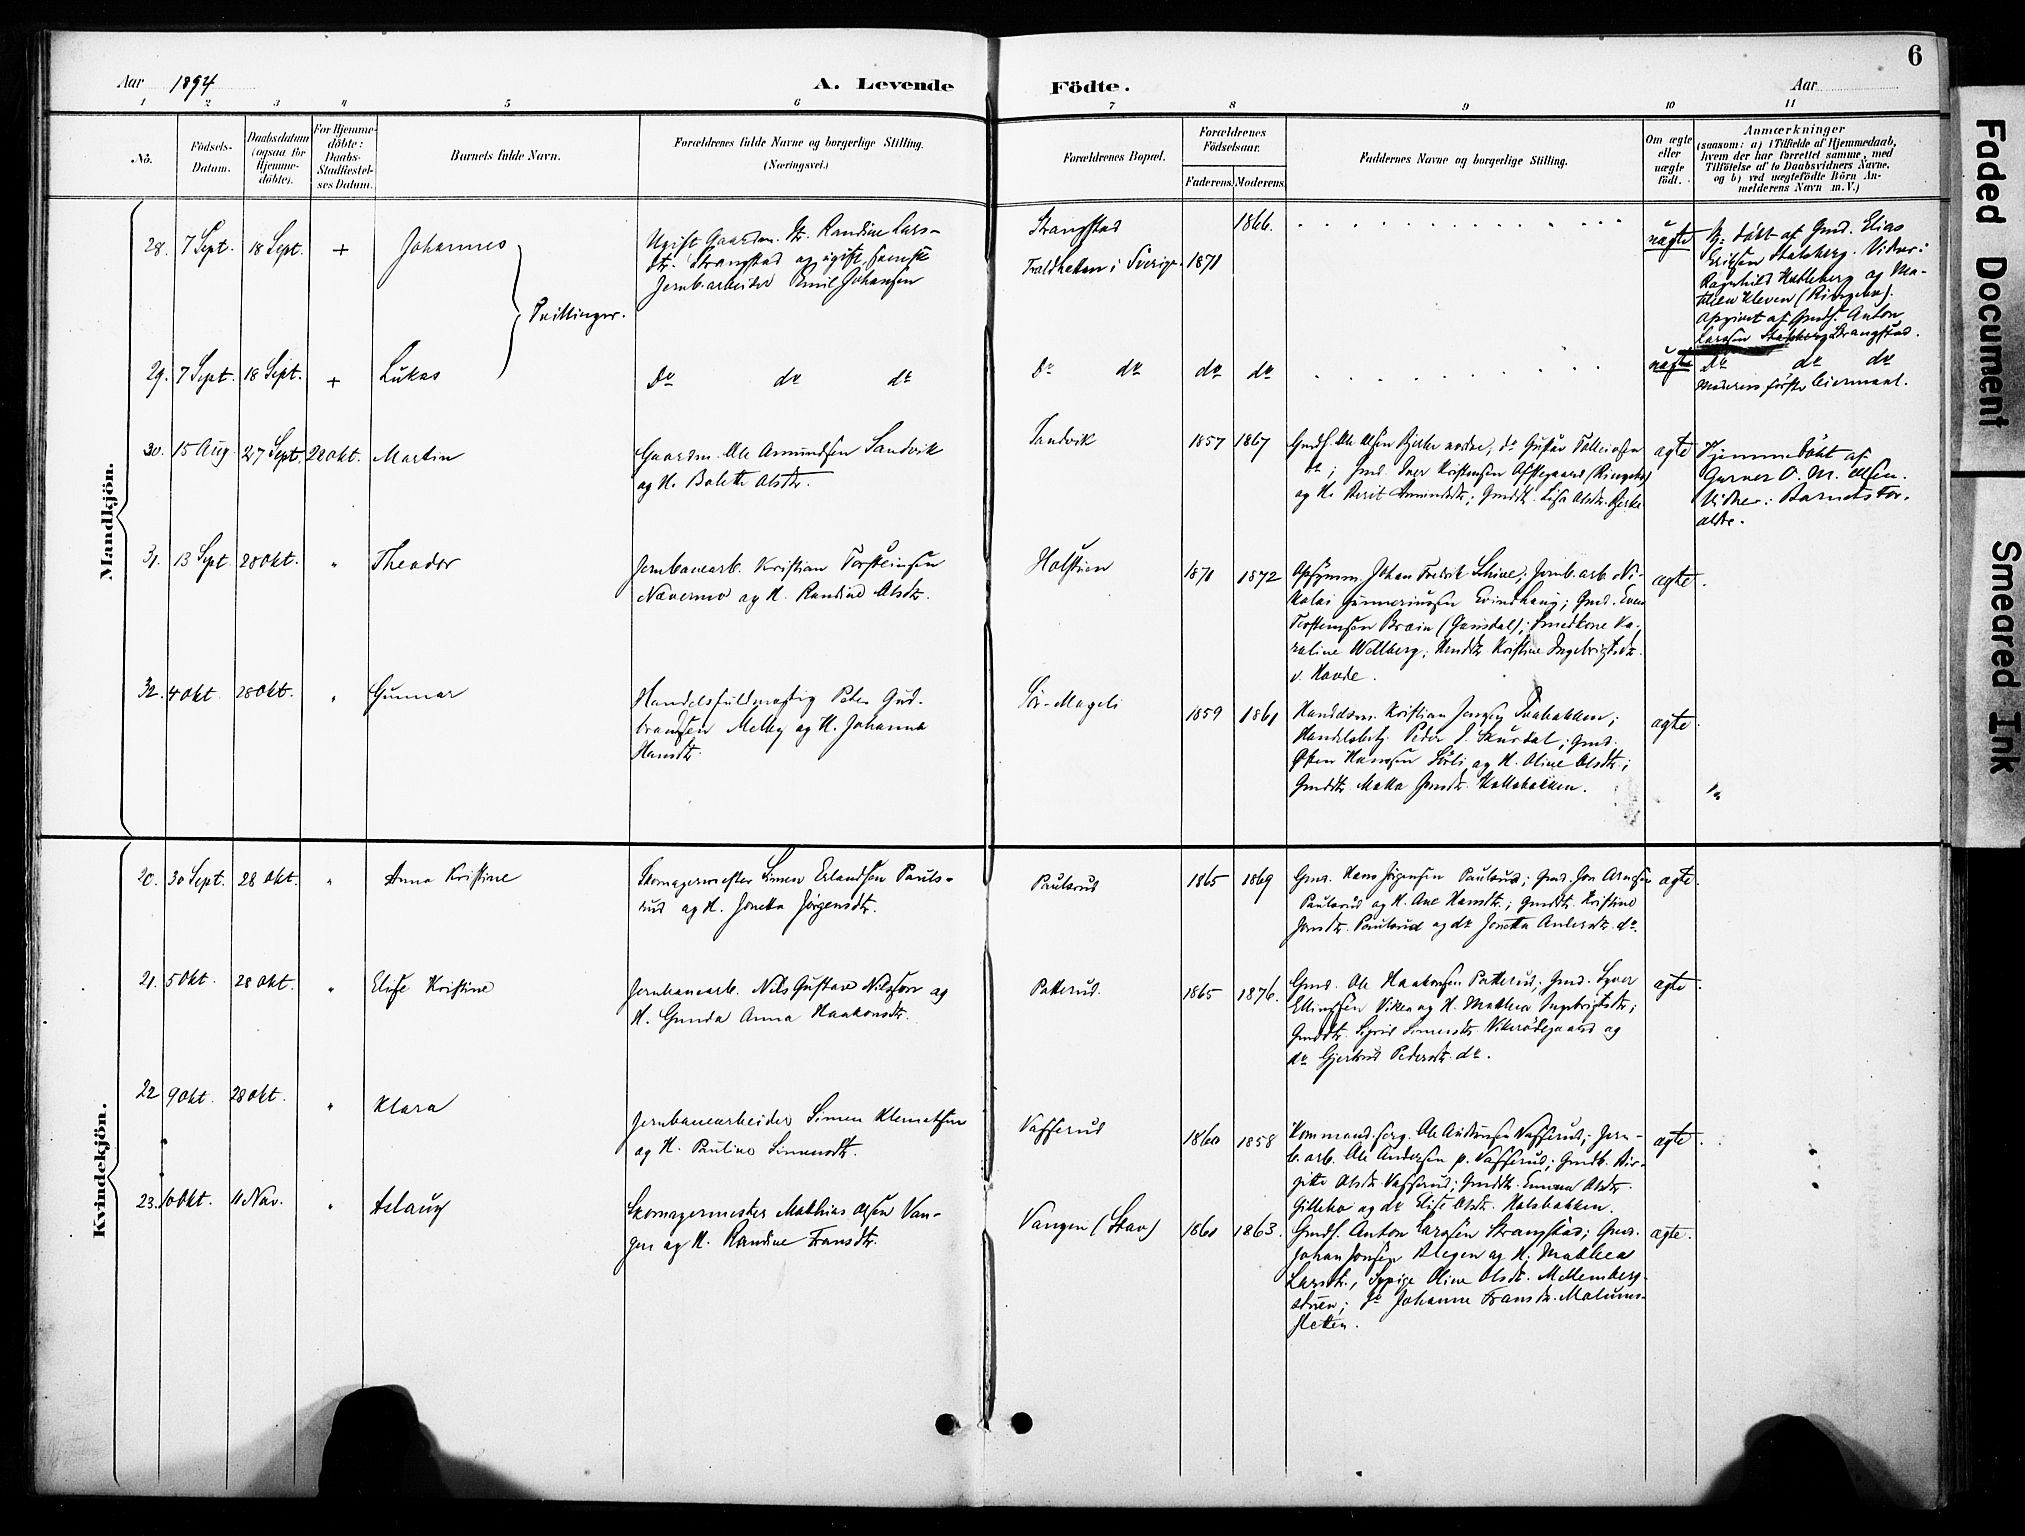 6
Aar 1894
A. Levende
Födte.
Aar
1 2 3 4 5 6 7 8 9 10 11
No.
Födsels-
Datum.
Daabsdatum
(ogsaa for
Hjemme-
döbte).
For Hjemme-
döbte:
Daabs-
Stadfæstel-
ses Datum.
Barnets fulde Navn.
Forældrenes fulde Navne og borgerlige Stilling.
(Næringsvei.)
Forældrenes Bopæl.
Forældrenes
Födselsaar.
Faderens. Moderens.
Faddernes Navne og borgerlige Stilling.
Om ægte
eller
uægte
födt.
Anmærkninger
(saasom: a) i Tilfælde af Hjemmedaab,
hvem der har forrettet samme, med
Tilföielse af to Daabsvidners Navne.
og b) ved uægtefödte Börn An-
melderens Navn m. V.)
Mandkjön.
28. 7 Sept. 18 Sept. + Johannes
Tvillinger.
Ugift Gaardm. Dtr. Randine Lars-
dtr. Strangstad og ugift, svensk
Jernb.arbeider Emil Johansen
Strangstad
i Sverige.
1866.
1871
uægte
Hj: döbt af Gmd. Elias
Eriksen Stalsberg. Vidner:
Ragnhild Hatleberg og Ma-
Kleven (Ringebu).
Opgivet af Gmdf. Anton
Larssen Strangstad.
29. 7 Sept. 18 Sept. + Lukas
Do do do
Do do do do
uægte
Do do do
Moderens förste Leiermaal.
30. 15 Aug. 27 Sept. 28 Okt. Martin
Gaardm. Ole Amundsen Sandvik
og H. Bolette Olsdtr.
Sandvik
1857 1867
Gmdf. Ole Olsen Bjerke nordre, do Gustav Tolleivsen
do; Gmd. Iver Kristensen (Ringebu)
og H. Berit Amundsdtr.; Gmddtr. Lisa Olsdtr. Bjerke
ægte
Hjemmedöbt af
Garver O. M. Olsen.
Vidner: Barnets For-
ældre.
31. 13 Sept. 28 Okt. " Theodor
Jernbanearb. Kristian Torsteinsen
Nævermo og H. Randine Olsdtr.
Holstien
1871 1872
Opsynsm. Johan Fredrik Schive; Jernb.arb. Ni-
kolai Gunneriussen Evindhaug; Gmd. Even
Torsteinsen Bræin (Gausdal); Smedkone Ka-
roline Wallberg; Gmddtr. Kristine Ingebrigtsdtr.
v. Hovde.
ægte
32. 4 Okt. 28 Okt. " Gunnar
Handelsfuldmægtig Peter Gud-
brandsen Melby og H. Johanna
Hansdtr.
Sör-Mageli
1859 1861
Handelsm. Kristian Jensen Tvebakken;
Handelsbetj. Peder P. Skurdal; Gmd.
Østen Hanssen Sörli og H. Oline Olsdtr.;
Gmddtr. Matea Jonsdtr. Kollebakken.
ægte
Kvindekjön.
20. 30 Sept. 28 Okt. " Anna Kristine
Skomagermester Simen Erlandsen Pauls-
rud og H. Jonetta Jørgensdtr.
Paulsrud
1865 1869
Gmd. Hans Jörgensen Paulsrud; Gmd. Jon Arnesen
Paulsrud og H. Ane Hansdtr.; Gmddtr. Kristine
Jonsdtr. Paulsrud og do Jonetta Andersdtr. do.
ægte
21. 5 Okt. 28 Okt. " Elise Kristine
Jernbanearb. Nils Gustav Nilsson og
H. Gunda Anna Haakonsdtr.
Patterud.
1865 1876.
Gmd. Ole Haakonsen Patterud; Gmd. Syver
Ellingsen Viken og H. Mathea Ingebrigtsdtr.;
Gmddtr. Sigrid Simensdtr. Vikerödegaard og
do Gjertrud Pedersdtr. do.
ægte
22 9 Okt. 28 Okt. " Klara
Jernbanearbeider Simen Klemetsen
og H. Pauline Simensdtr.
Vafferud
1860 1858
Kommand.serg. Ole Andersen Vafferud; Jern-
b.arb. Ole Andersen p. Vafferud; Gmdk. Bir-
gitte Olsdtr. Vafferud; Gmddtr. Emma Olsdtr.
Gillebo og do Elise Olsdtr. Holsbakken.
ægte
23. 10 Okt. 11 Nov. " Aslaug
Skomagermester Mathias Olsen Van-
gen og H. Randine Fransdtr.
Vangen (Skav)
1861 1863.
Gmdf. Anton Larssen Strangstad; Gmd.
Johan Jonsen Alegen og H. Mathea
Larsdtr., Sypige Oline Olsdtr. Mellemberg-
stuen; do Johanne Fransdtr. Malums-
sletten.
ægte.
Faded Document
Smeared Ink